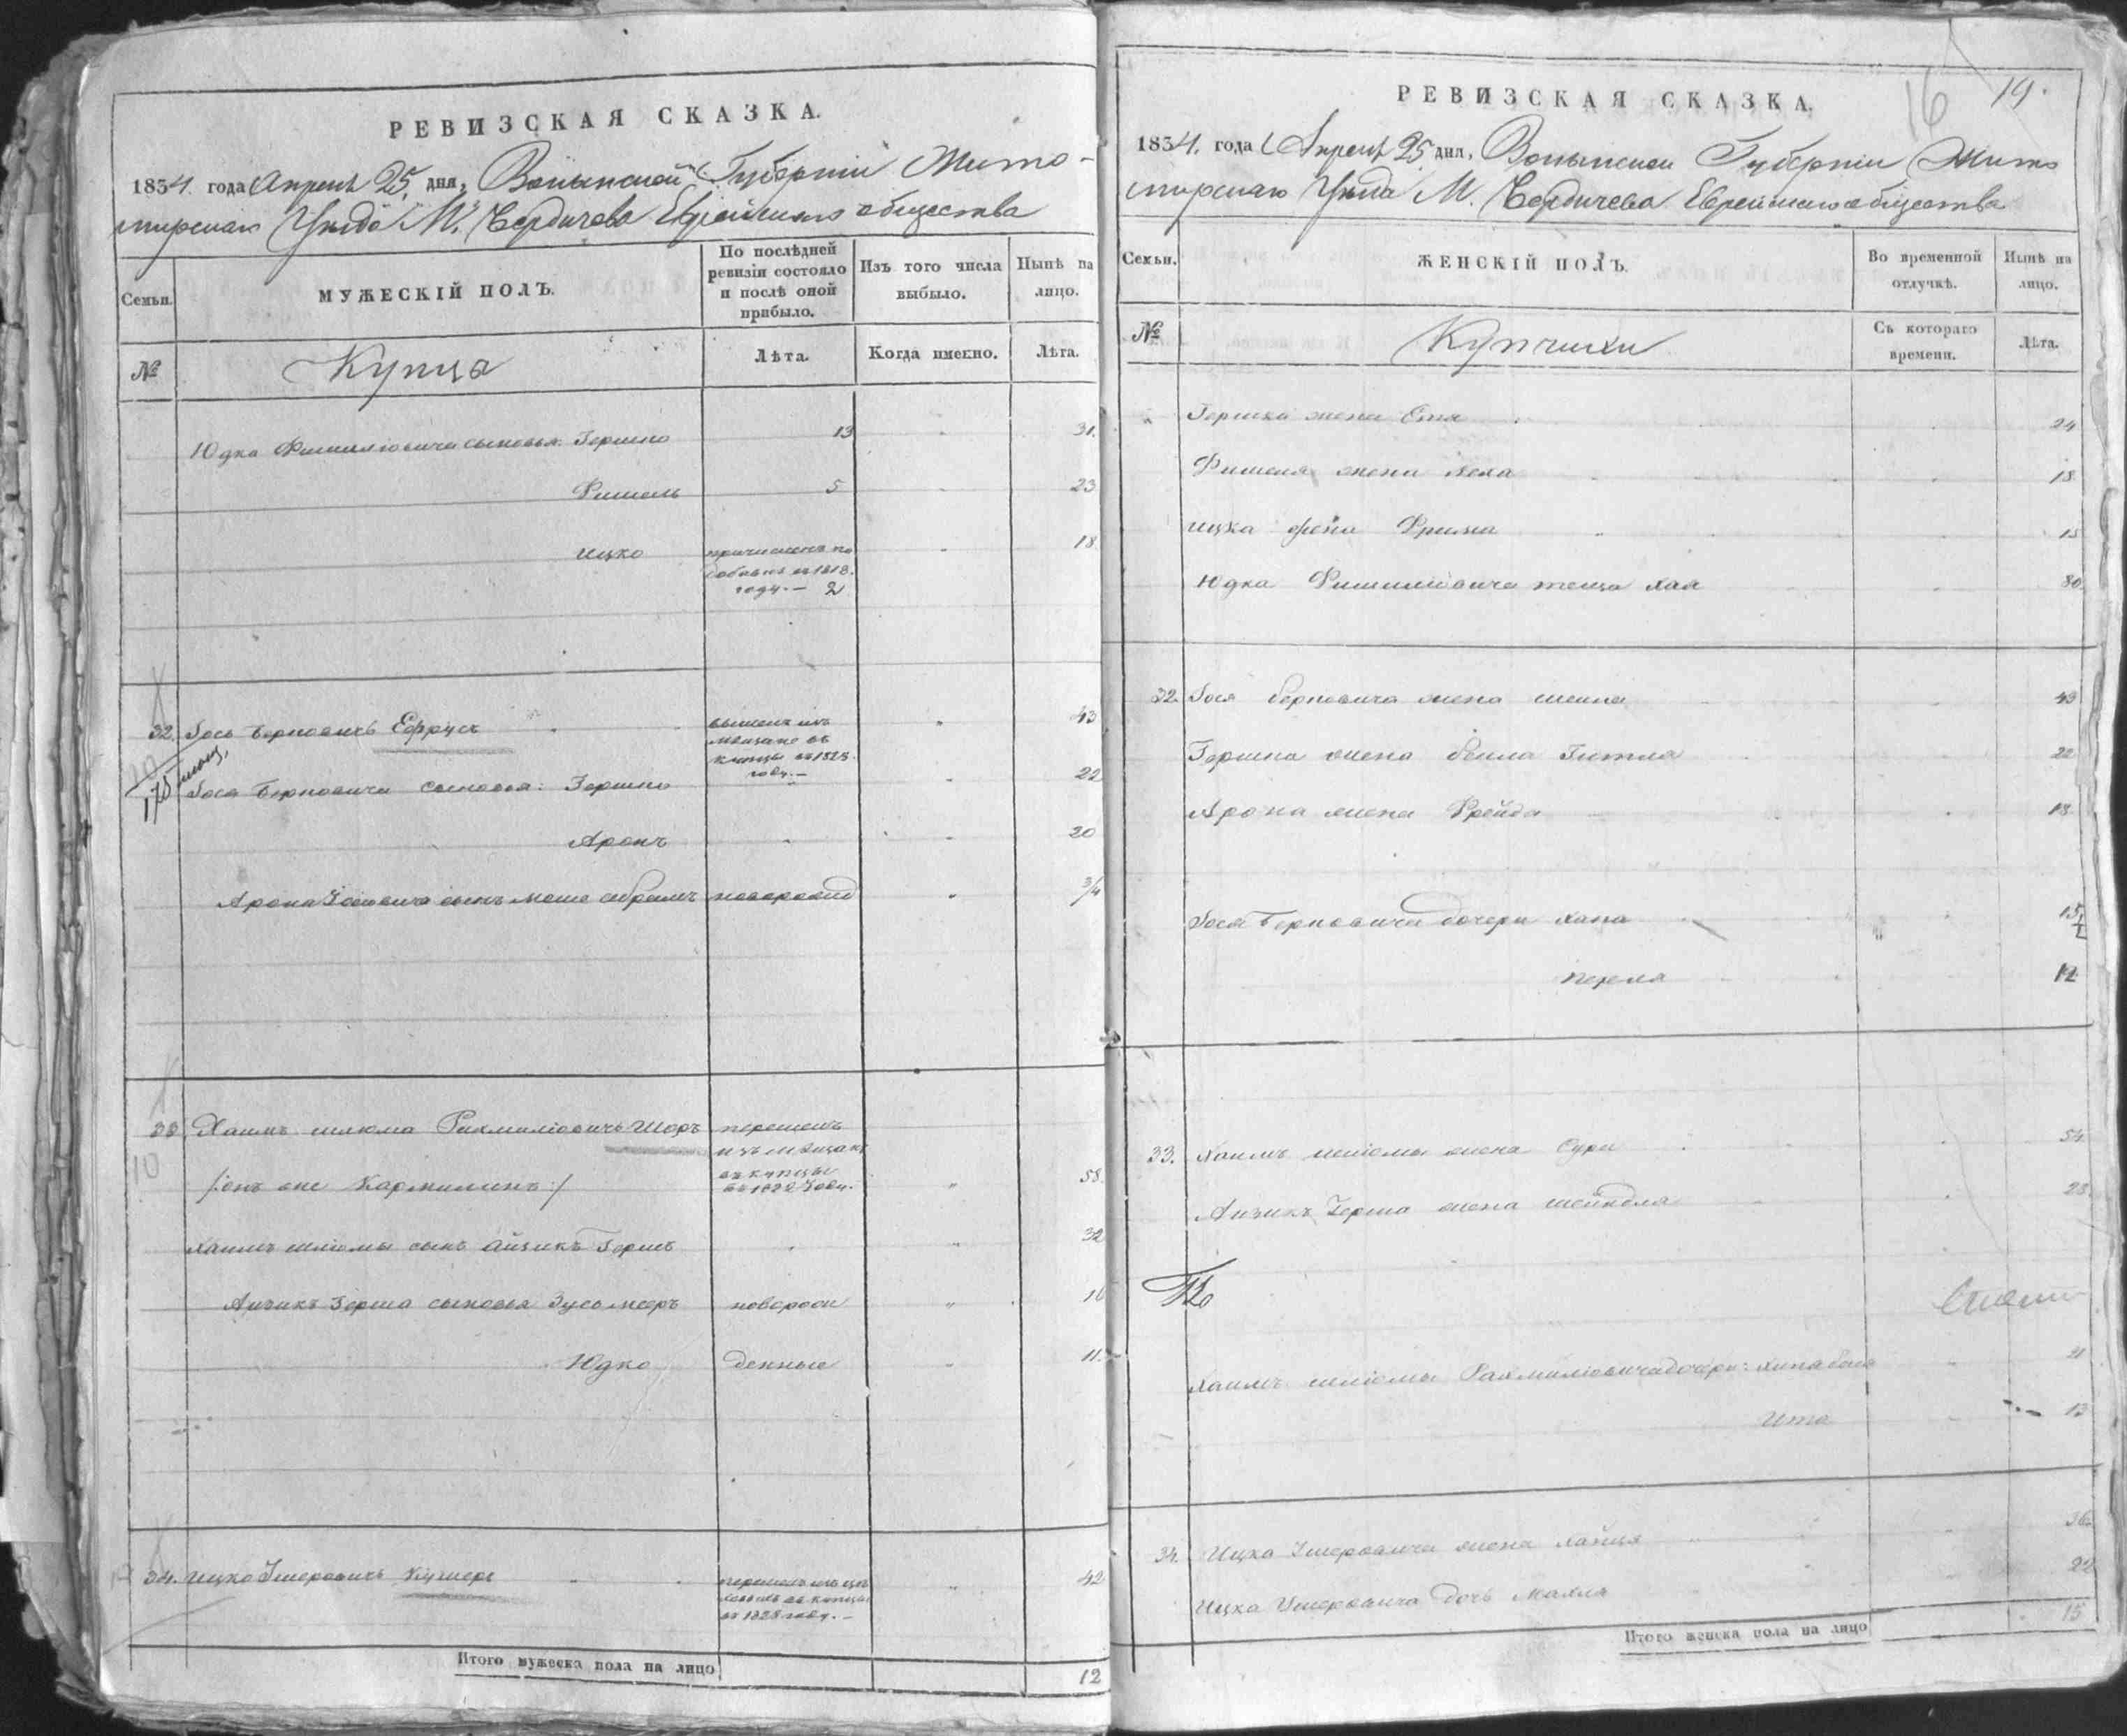 РЕВИЗСКАЯ СКАЗКА.
1834. года Апреля 25 дня, Волынской Губернии Жито-
мирскаго Уезда М. Бердичева Еврейскаго общества
Семьи.
МУЖЕСКІЙ ПОЛЪ.
По послѣдней ревизіи состояло и послѣ оной прибыло.
Изъ того числа выбыло.
Нынѣ на лицо.
№
Купцы
Лѣта.
Когда именно.
Лѣта.
Юдка Фишилiовича сыновья: Гершко 13 31.
Фишель 5 23
Ицко 18
причисленъ по
въ 1818.
году. — 2
32. Іось Берковичъ Ефрусъ 43
вышелъ изъ
мѣщанъ въ
купцы въ 1828
году. —
175
Іося Берковича сыновья: Гершко 22
Аронъ 20
Арона Іосіовича сынъ Моше Абрамъ новорожд 3/4
33 Хаимъ Шліома Рахмиліовичъ Шоръ перешелъ
изъ мѣщанъ
въ купцы
въ 1822 году.
10
/:онъ же Кармилинъ:/ 58.
Хаимъ Шліомы сынъ Айзикъ Гершъ 32
Айзикъ Герша сыновья Зусь Мееръ новорож 16
Юдко денные 11.
34. Ицко Ушеровичъ Кушеръ 42
въ купцы
въ 1828 году. —
Итого мужеска пола на лицо 12
16 19.
РЕВИЗСКАЯ СКАЗКА.
1834. года Апреля 25 дня, Волынской Губернии Жито
мирскаго Уезда М. Бердичева Еврейскаго общества
Семьи.
ЖЕНСКІЙ ПОЛЪ.
Во временной отлучкѣ.
Нынѣ на лицо.
№
Купчихи
Съ котораго времени.
Лѣта.
Гершка жена Етя 24
Фишеля жена Лея 18
Ицка жена Фрима 15
Юдка Фишилiовича теща Хая 80
32. Іося Берковича жена 43
Гершка жена Бейла Гитля 22
Арона жена Фрейда 18
Іося Берковича дочери Хана 15
Перля 12
33. Хаимъ Шліомы жена Сура 54
Айзикъ Герша жена Шейндля 28.
Хаимъ Шліомы Рахмиліовича дочери: 21
Ита 13
34. Ицка Ушеровича жена Хайця 36
Ицка Ушеровича дочь Махля 22
Итого женска пола на лицо 15